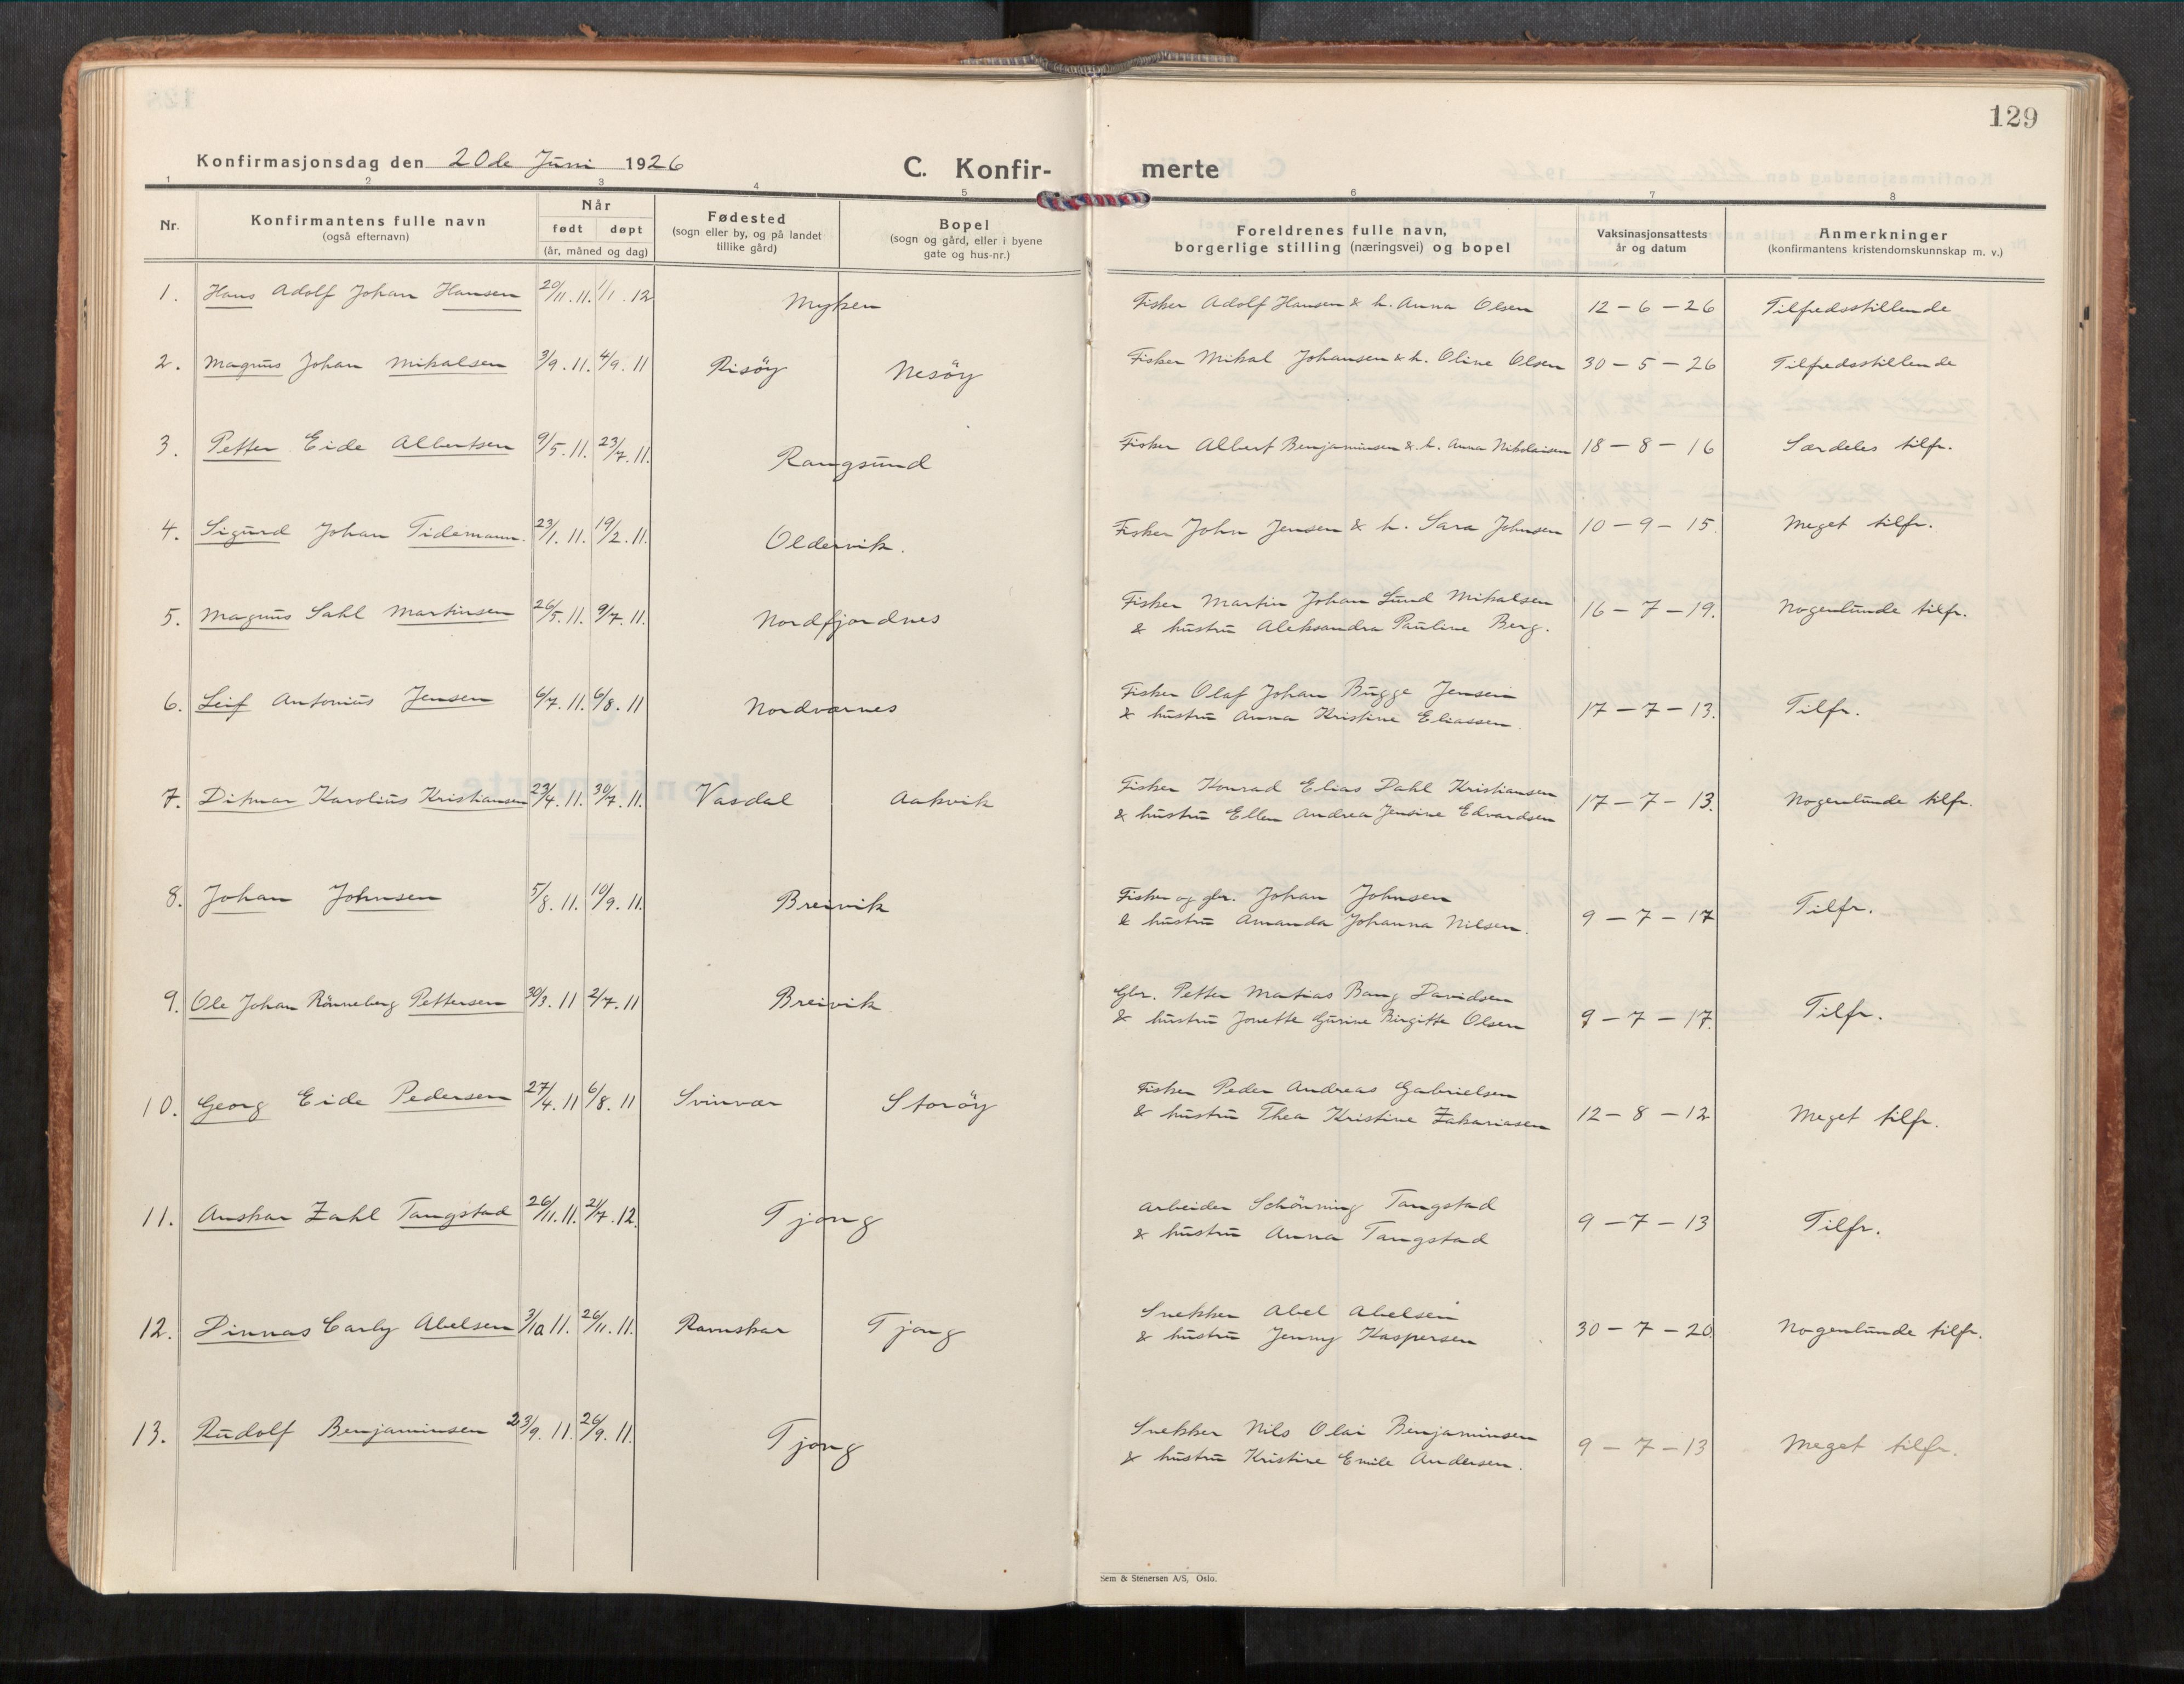 129
Konfirmasjonsdag den 20de Juni 1926
C. Konfir- merte
1 2 3 4 5 6 7 8
Nr. Konfirmantens fulle navn (også efternavn) Når født døpt (år, måned og dag) Fødested (sogn eller by, og på landet tillike gård) Bopel (sogn og gård, eller i byene gate og hus-nr.) Foreldrenes fulle navn, borgerlige stilling (næringsvei) og bopel Vaksinasjonsattests år og datum Anmerkninger (konfirmantens kristendomskunnskap m. v.)
1. Hans Adolf Johan Hansen 20/11. 11. 1/1. 12 Myken Fisker Adolf Hansen & h. Anna Olsen 12-6-26 Tilfredsstillende
2. Magnus Johan Mikalsen 3/9. 11. 4/9. 11 Risöy Nesöy Fisker Mikal Johansen & h. Oline Olsen 30-5-26 Tilfredsstillende
3. Petter Eide Albertsen 9/5. 11. 23/7. 11. Rangsund Fisker Albert Benjaminsen & h. Anna Nikolaisen 18-8-16 Særdeles tilfr.
4. Sigurd Johan Tidemann. 23/1. 11. 19/2. 11. Oldervik. Fisker John Jensen & h. Sara Johnsen 10-9-15. Meget tilfr.
5. Magnus Sahl Martinsen 26/5. 11. 9/7. 11. Nordfjordnes Fisker Martin Johan Lund Mikalsen
& hustru Aleksandra Pauline Berg. 16-7-19. Nogenlunde tilfr.
6. Leif Antonius Jensen 6/7. 11. 6/8. 11 Nordværnes Fisker Olaf Johan Bugge Jensen
& hustru Anna Kristine Eliassen. 17-7-13. Tilfr.
7. Ditmar Karolius Kristiansen 23/4. 11. 30/7. 11. Vasdal Aakvik Fisker Konrad Elias Dahl Kristiansen
& hustru Ellen Andrea Jensine Edvardsen 17-7-13. Nogenlunde tilfr.
8. Johan Johnsen 5/8. 11. 10/9. 11. Breivik Fisker og gbr. Johan Johnsen
& hustru Amanda Johanna Nilsen. 9-7-17 Tilfr.
9. Ole Johan Rönneberg Pettersen 30/3. 11 2/7. 11 Breivik Gbr. Petter Matias Bang Davidsen
& hustru Jonette Gurine Birgitte Olsen 9-7-17. Tilfr.
10. Georg Eide Pedersen 27/4. 11 6/8. 11 Svinvær Storöy Fisker Peder Andreas Gabrielsen
& hustru Thea Kristine Zakariasen 12-8-12 Meget tilfr.
11. Anskar Zahl Tangstad 26/11. 11. 21/7. 12. Tjong Arbeider Schönning Tangstad
& hustru Anna Tangstad 9-7-13 Tilfr.
12. Dinnas Carly Abelsen 3/10 11. 26/11. 11. Ramskar Tjong Snekker Abel Abelsen
& hustru Jenny Kaspersen 30-7-20. Nogenlunde tilfr.
13. Rudolf Benjaminsen 23/9. 11. 26/9. 11. Tjong Snekker Nils Olai Benjaminsen
& hustru Kristine Emile Andersen. 9-7-13 Meget tilfr.
Sem & Stenersen A/S, Oslo.